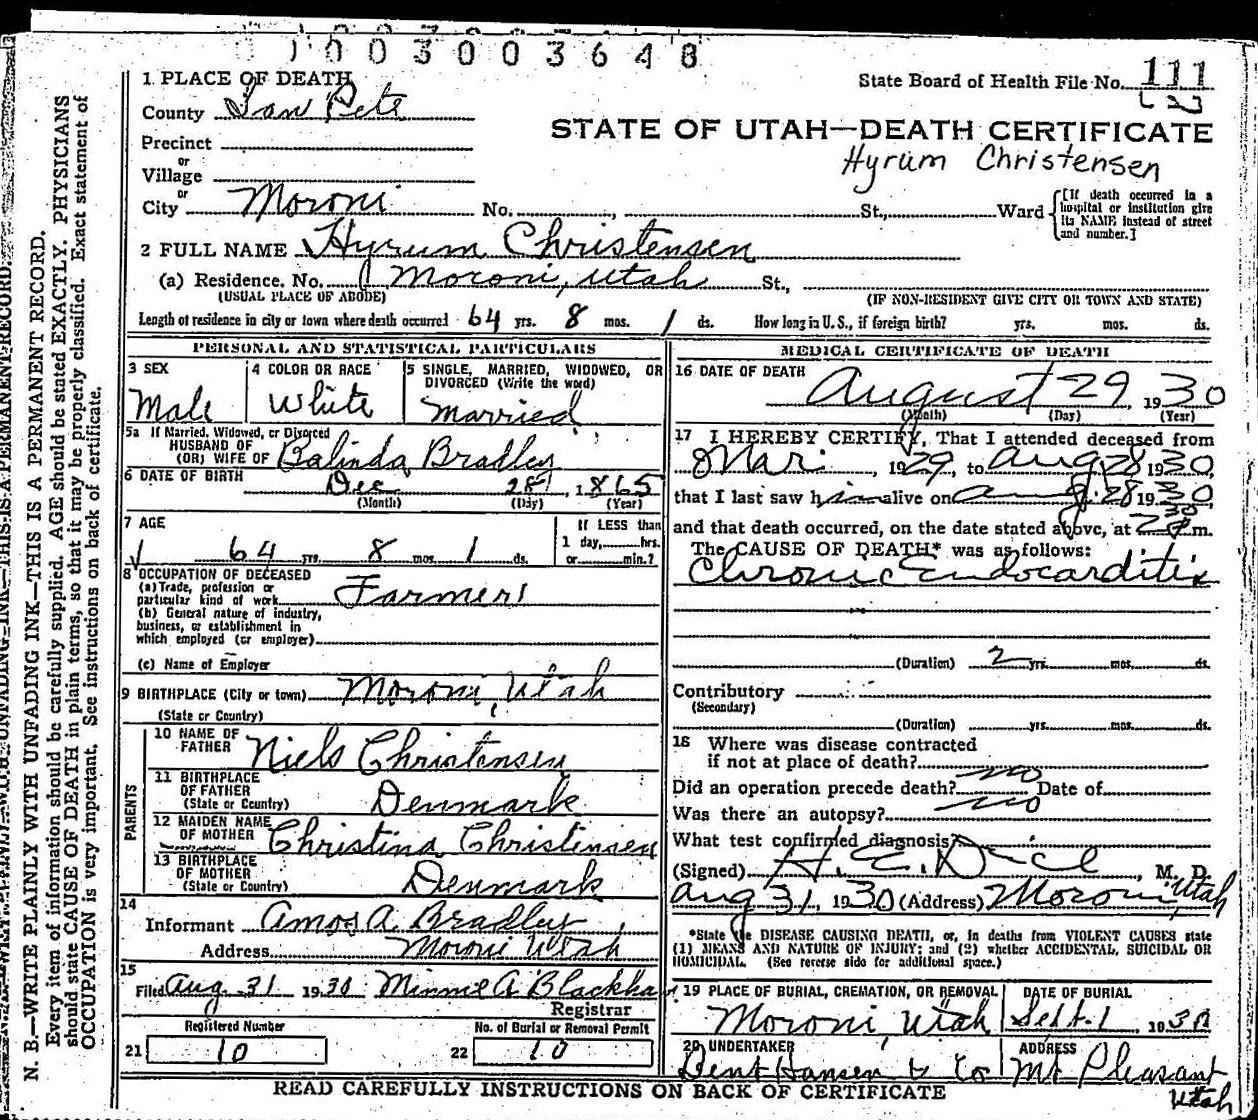 1003003648
1 PLACE OF DEATH
State Board of Health File No. 111
County San Pete
STATE OF UTAH—DEATH CERTIFICATE
Hyrum Christensen
Precinct
or
Village
or
City Moroni No. , St., Ward
[If death occurred in a hospital or institution give its NAME instead of street and number.]
2 FULL NAME Hyrum Christensen
(a) Residence. No. Moroni, Utah St.,
(USUAL PLACE OF ABODE) (IF NON-RESIDENT GIVE CITY OR TOWN AND STATE)
Length of residence in city or town where death occurred 64 yrs. 8 mos. 1 ds. How long in U. S., if foreign birth? yrs. mos. ds.
PERSONAL AND STATISTICAL PARTICULARS
3 SEX
Male
4 COLOR OR RACE
White
5 SINGLE, MARRIED, WIDOWED, OR
DIVORCED (Write the word)
Married
5a If Married, Widowed, or Divorced
HUSBAND OF
(OR) WIFE OF Balinda Bradley
6 DATE OF BIRTH Dec 28, 1865
(Month) (Day) (Year)
7 AGE
64 yrs. 8 mos. 1 ds.
If LESS than
1 day, hrs.
or min.?
8 OCCUPATION OF DECEASED
(a) Trade, profession or
particular kind of work Farmer
(b) General nature of industry,
business, or establishment in
which employed (or employer)
(c) Name of Employer
9 BIRTHPLACE (City or town) Moroni, Utah
(State or Country)
PARENTS
10 NAME OF
FATHER Niels Christensen
11 BIRTHPLACE
OF FATHER
(State or Country) Denmark
12 MAIDEN NAME
OF MOTHER Christina Christensen
13 BIRTHPLACE
OF MOTHER
(State or Country) Denmark
14
Informant Amos A. Bradley
Address Moroni Utah
15
Filed Aug. 31 1930 Minnie A. Blackham
Registrar
Registered Number
21 10
No. of Burial or Removal Permit
22 10
MEDICAL CERTIFICATE OF DEATH
16 DATE OF DEATH
August 29 1930
(Month) (Day) (Year)
17 I HEREBY CERTIFY, That I attended deceased from
Mar , 1929, to Aug. 28 1930,
that I last saw him alive on Aug. 28 1930
and that death occurred, on the date stated above, at m.
The CAUSE OF DEATH* was as follows:
Chronic Endocarditis
(Duration) 2 yrs. mos. ds.
Contributory
(Secondary)
(Duration) yrs. mos. ds.
18 Where was disease contracted
if not at place of death?
Did an operation precede death? no Date of
Was there an autopsy? no
What test confirmed diagnosis?
(Signed) H. E. Dice, M. D.
Aug 31, 1930 (Address) Moroni, Utah
*State the DISEASE CAUSING DEATH, or, in deaths from VIOLENT CAUSES state
(1) MEANS AND NATURE OF INJURY; and (2) whether ACCIDENTAL, SUICIDAL OR
HOMICIDAL. (See reverse side for additional space.)
19 PLACE OF BURIAL, CREMATION, OR REMOVAL
Moroni, Utah
DATE OF BURIAL
Sept. 1, 1930
20 UNDERTAKER
Hansen & Co
ADDRESS
Mt Pleasant
Utah
READ CAREFULLY INSTRUCTIONS ON BACK OF CERTIFICATE
N. B.—WRITE PLAINLY WITH UNFADING INK—THIS IS A PERMANENT RECORD.
Every item of information should be carefully supplied. AGE should be stated EXACTLY. PHYSICIANS
should state CAUSE OF DEATH in plain terms, so that it may be properly classified. Exact statement of
OCCUPATION is very important. See instructions on back of certificate.